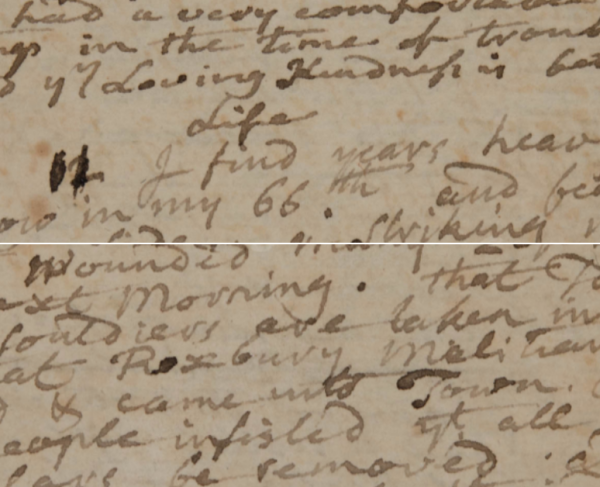 had a very comfortable
in the time of troub
yt Loving Kindness is bet
Life
11 I find years heav
ow in my 66th and bei
striking
wounded
ext Morning. that To
souldiers are taken in
at Roxbury Malitian
& came into Town.
eople insisted yt all
be removed